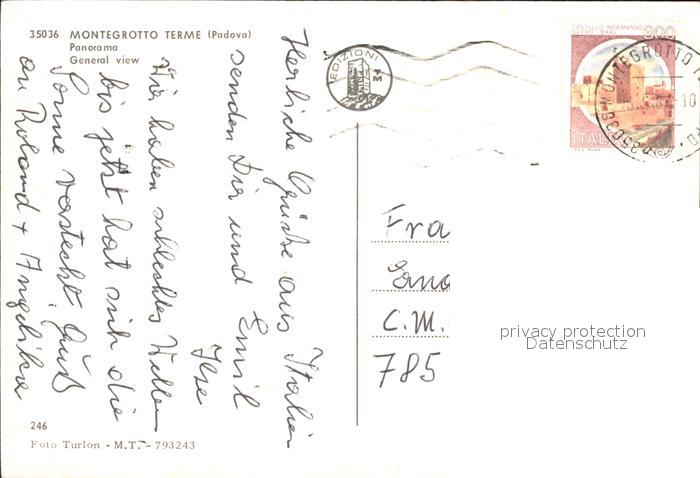 35036 MONTEGROTTO TERME (Padova)
Panorama
General view
EDIZIONI
CASTELLO NORMANNO
SVEVO BARI
900
ITALIA
35036 MONTEGROTTO
10
Herliche Grüße aus Italien
senden Dir und Emil
Ilse
Wir haben schlechtes Wetter
bis jetzt hat sich die
Sonne versteckt Gruß
an Roland + Angelika
Fra
C.M.
785
privacy protection
Datenschutz
246
Foto Turlon - M.T. - 793243